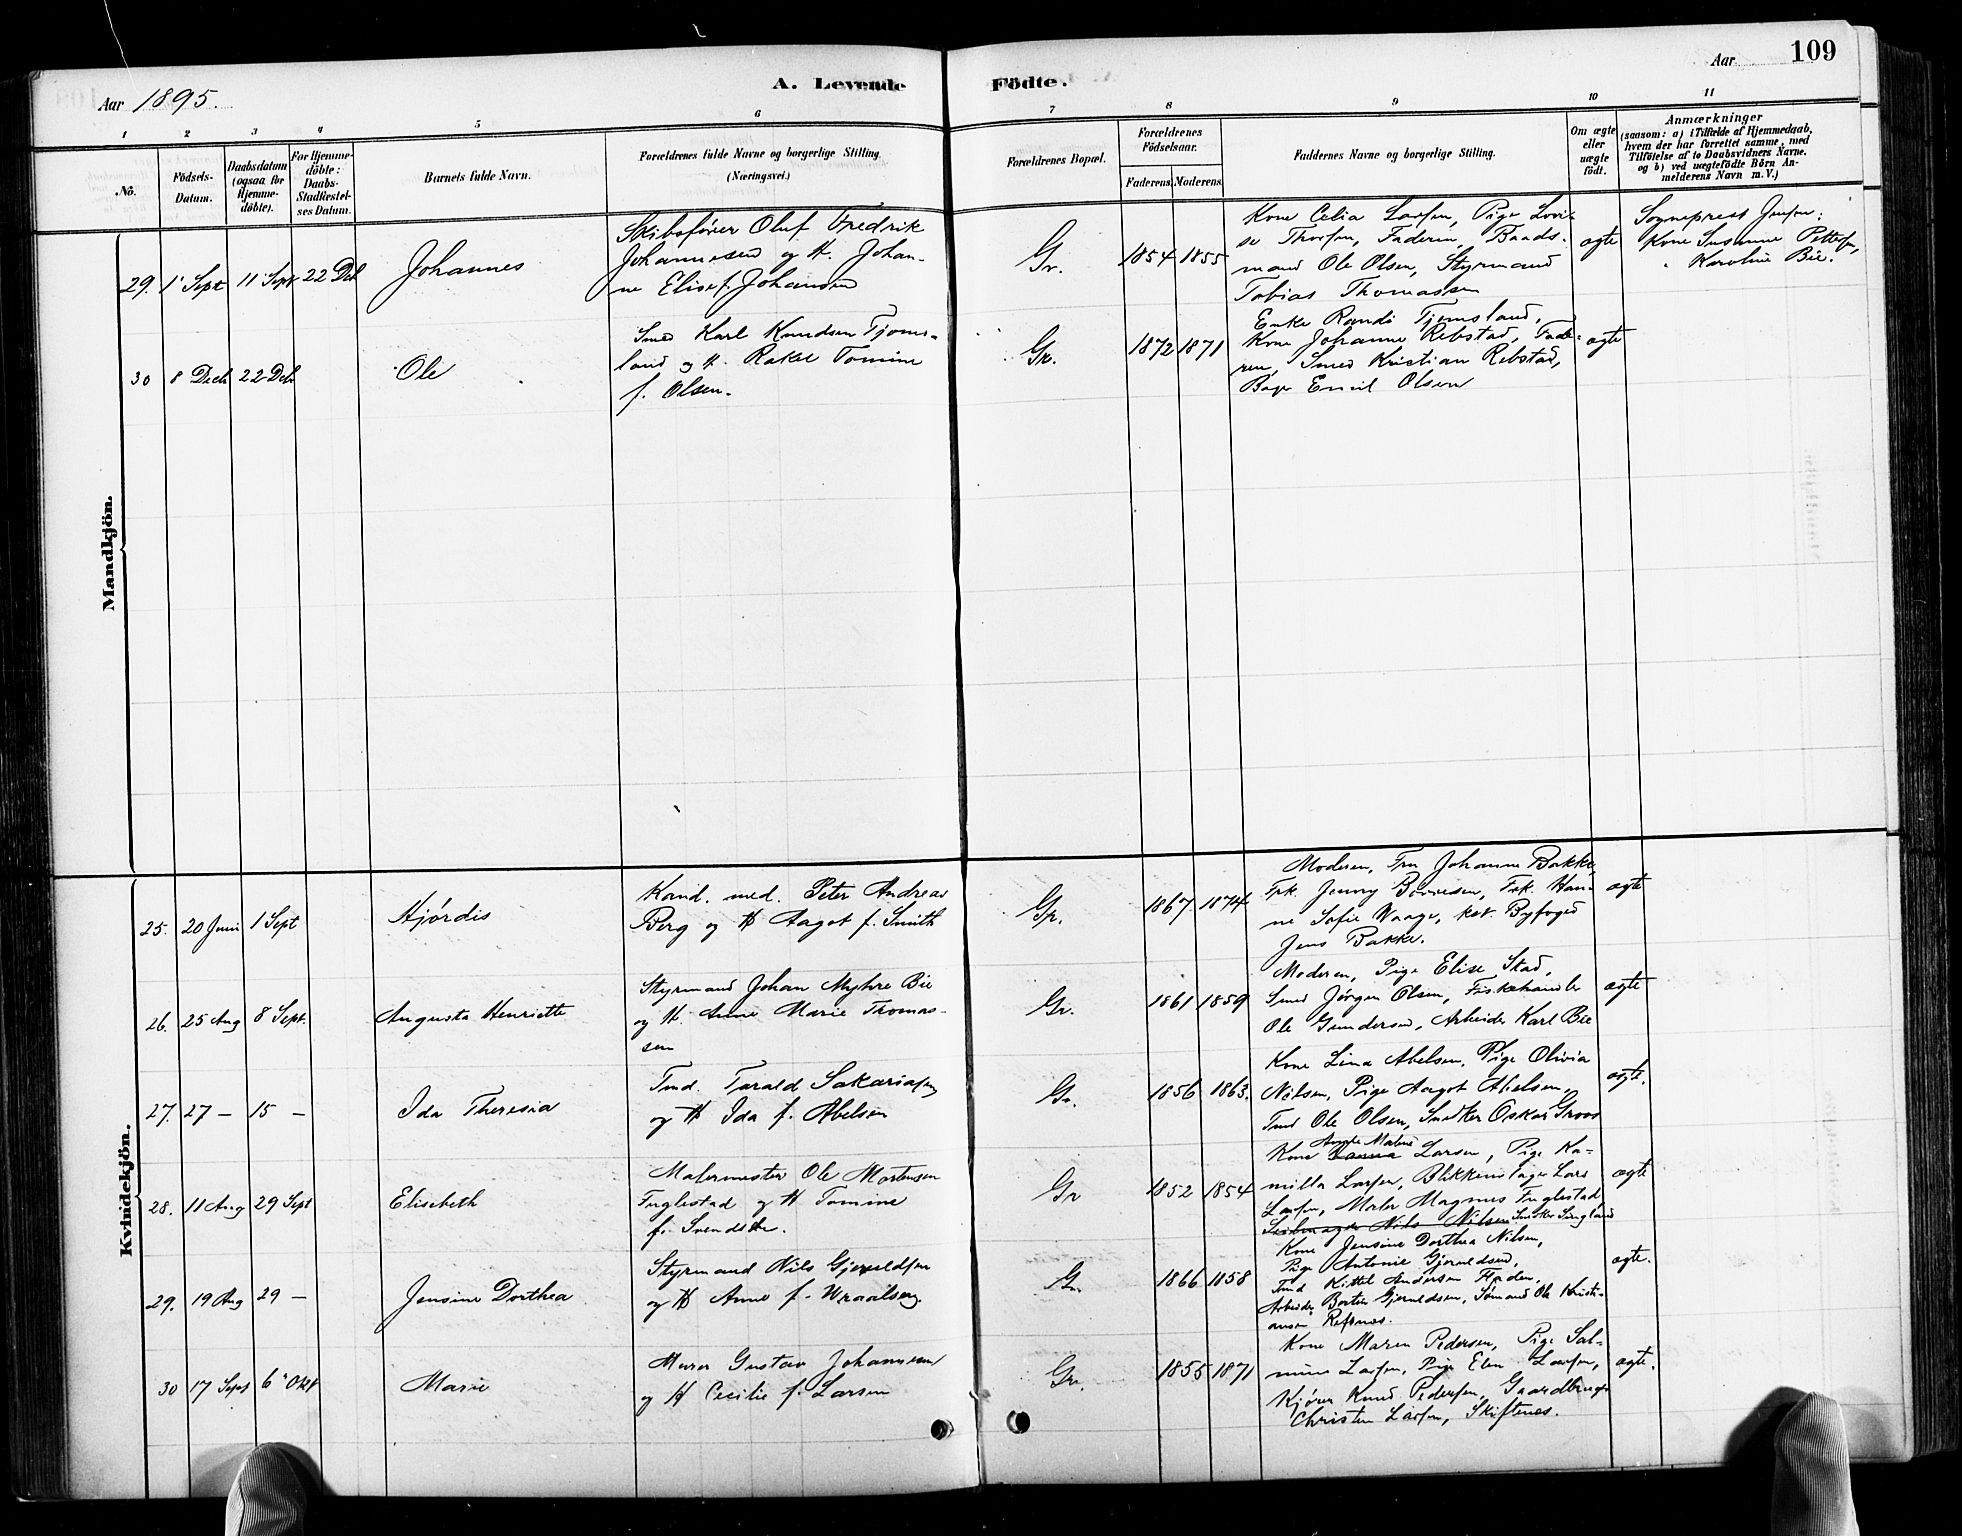 Aar 1895.
A. Levende
Födte.
Aar
109
1
2
3
4
5
6
7
8
9
10
11
No.
Födsels-
Datum.
Daabsdatum
(ogsaa for
Hjemme-
döbte).
For Hjemme-
döbte:
Daabs-
Stadfæstel-
ses Datum.
Barnets fulde Navn.
Forældrenes fulde Navne og borgerlige Stilling
(Næringsvei.)
Forældrenes Bopæl.
Forældrenes
Födselsaar.
Faderens.
Moderens.
Faddernes Navne og borgerlige Stilling.
Om ægte
eller
uægte
født.
Anmærkninger
(saasom: a) i Tilfælde af Hjemmedaab,
hvem der har forrettet samme, med
Tilföielse af to Daabsvidners Navne.
og b) ved uægtefödte Börn An-
melderens Navn m. V.)
Mandkjön.
29. 1 Sept 11 Sept 22 Deb
Johannes
Skibsfører Oluf Fredrik
Johannesen og H. Johan-
ne Elise f. Johansen
Gr.
1854 1855
Kone Celia Larsen, Pige Lovi-
se Thorsen, Faderen, Baads-
mand Ole Olsen, Styrmand
Tobias Thomassen
ægte
Sogneprest Jensen;
Kone Susanne Pettersen,
" Karoline Bie.
30 8 Decb 22 Deb
Ole
Smed Karl Knudsen Tjoms-
land og H. Rakel Tomine
f. Olsen.
Gr.
1872 1871
Enke Randi Tjomsland,
Kone Johanne Rebstad, Fade-
ren, Smed Kristian Rebstad,
Bager Emil Olsen
ægte
Kvindekjön.
25. 20 Juni 1 Sept
Hjørdis
Kand. med. Peter Andreas
Berg og H Aagot f. Smith
Gr.
1867 1874
Moderen, Fru Johanne Bakke,
Frk. Jenny Børresen, Frk. Han-
ne Sofie Waage, kst. Byfoged
Jens Bakke.
ægte
26. 25 Aug 8 Sept.
Augusta Henriette
Styrmand Johan Myhre Bie
og H. Anne Marie Thomas-
sen
Gr.
1861 1859
Moderen, Pige Elise Stad,
Smed Jørgen Olsen, Fiskehandler
Ole Gundersen, Arbeider Karl Bie
ægte
27. 27 — 15 —
Ida Theresia
Tmd. Tarald Sakariasen
og H Ida f. Abelsen
Gr.
1856 1863.
Kone Lina Abelsen, Pige Olivia
Nilsen, Pige Aagot Abelsen,
Tmd Ole Olsen, Snedker Oskar Groos
ægte.
28. 11 Aug 29 Sept
Elisebeth
Malermester Ole Mortensen
Fuglestad og H Tomine
f. Svendsen.
Gr
1852 1854
Kone Larsen, Pige Ka-
milla Larsen, Blikkenslager Lars
Larsen, Maler Magnus Fuglestad,
Nils Nilsen Snedker
ægte
29. 19 Aug 29 —
Jensine Dorthea
Styrmand Nils Gjeruldsen
og H Anne f. Wraalsen.
Gr.
1866 1858
Kone Jensine Dorthea Nilsen,
Pige Antonie Gjeruldsen,
Tmd Kittel Andersen
Arbeider Gjeruldsen, Sømand Ole Kristi-
ansen Refsnes.
ægte.
30 17 Sept 6 Okt
Marie
Murer Gustav Johannesen
og H Cecilie f. Larsen
Gr.
1855 1871
Kone Maren Pedersen, Pige Sal-
mine Larsen, Pige Elen Larsen,
Kjører Knud Pedersen, Gaardbruger
Christen Larsen, Skiftenes.
ægte.